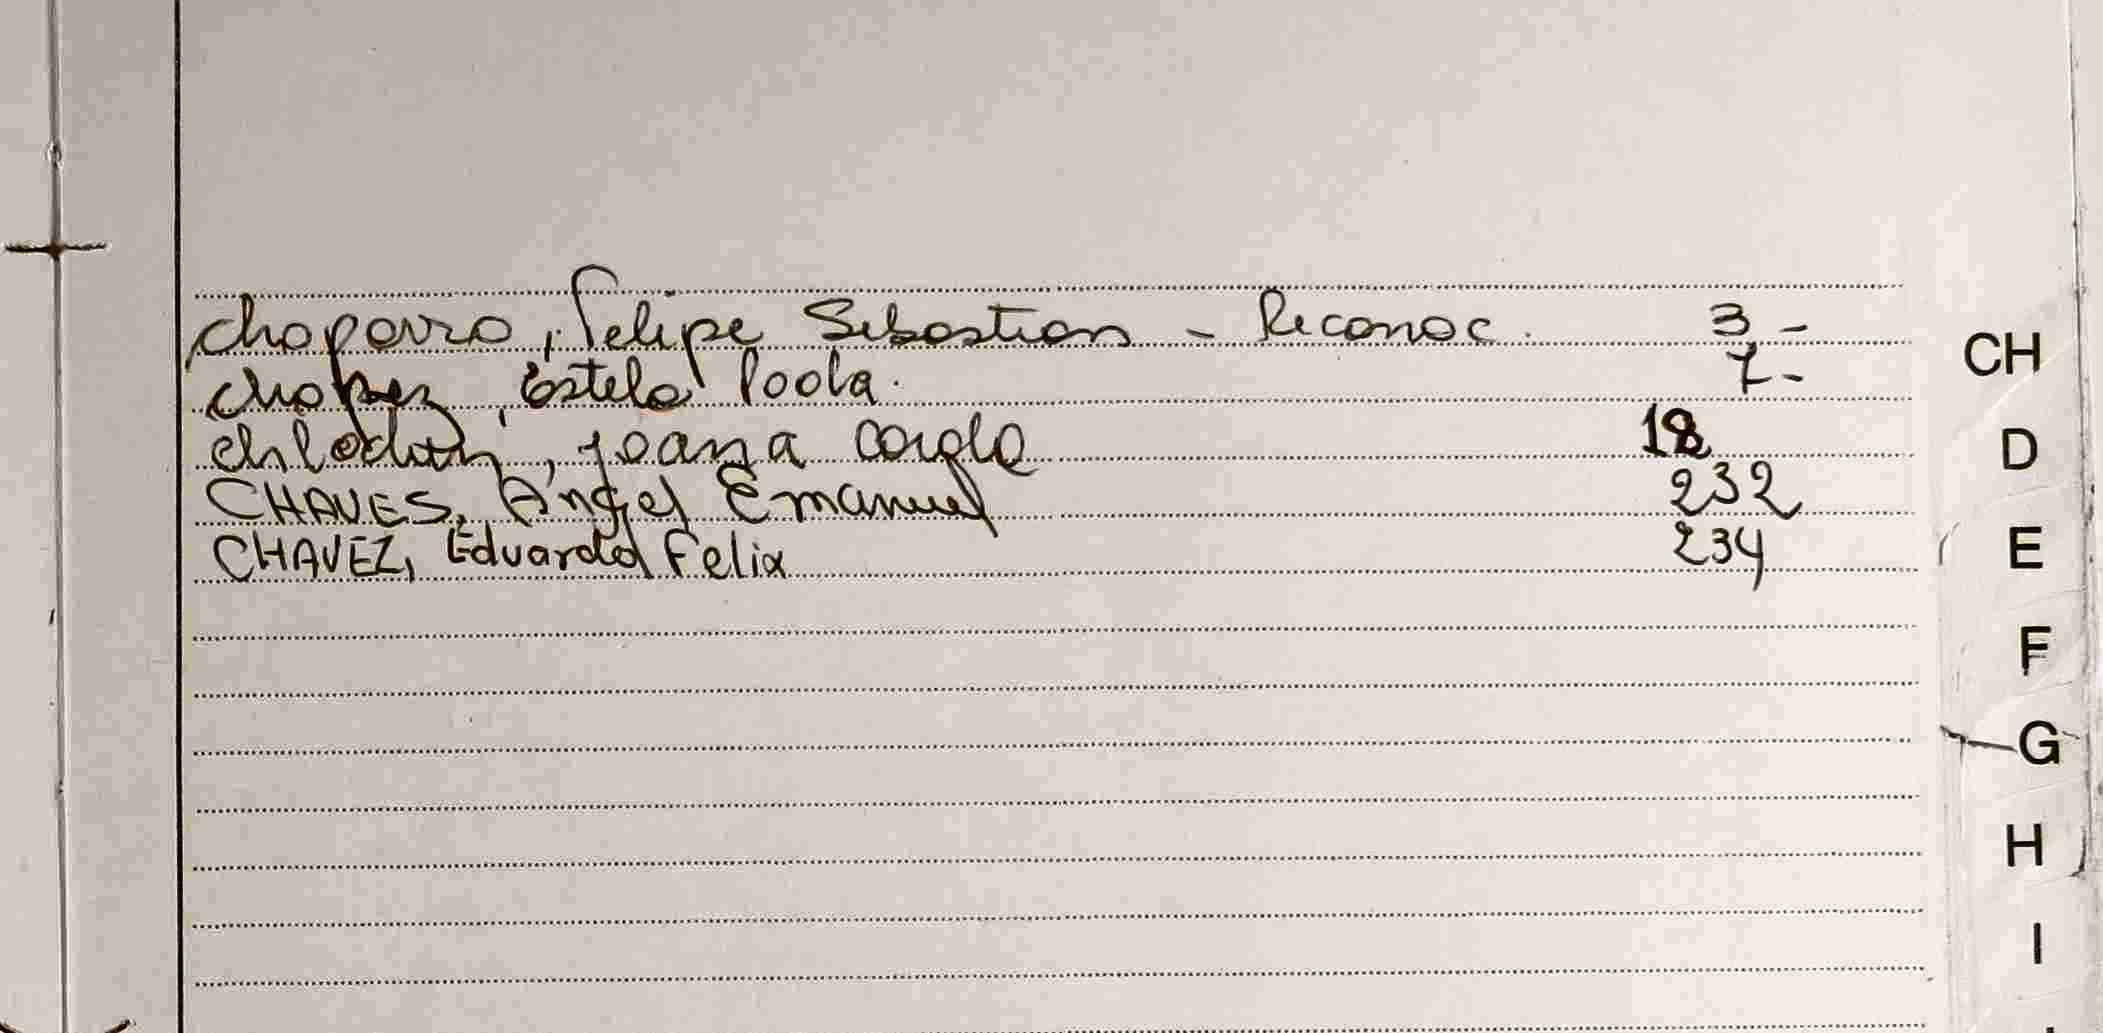 Chaparro, Felipe Sebastian - Reconoc. 3 -
Chapez, Estela Paola. 7 -
Joana Carola 18
CHAVES, Ángel Emanuel 232
CHAVEZ, Eduardo Felix 234
CH
D
E
F
G
H
I